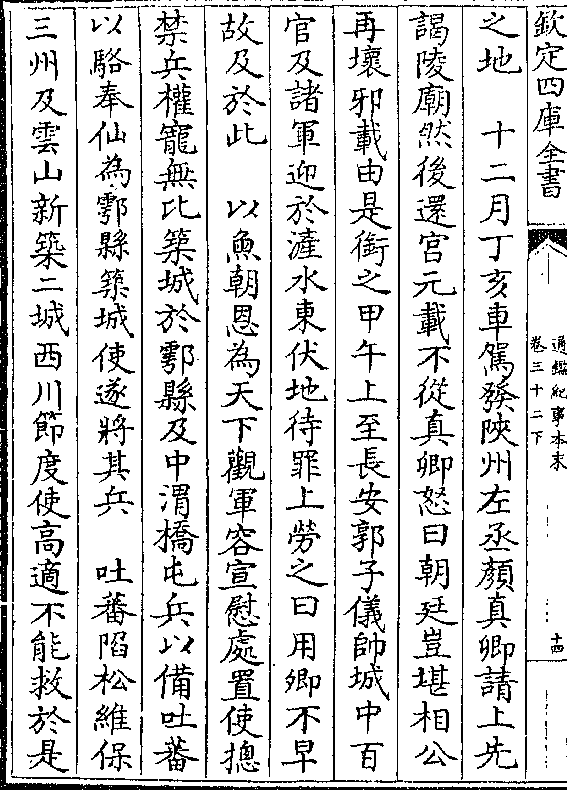 欽定四庫全書
通鑑紀事本末
卷三十二下
十四
之地　十二月丁亥車駕發陝州左丞顏真卿請上先
謁陵廟然後還宮元載不從真卿怒曰朝廷豈堪相公
再壞邪載由是銜之甲午上至長安郭子儀帥城中百
官及諸軍迎於滻水東伏地待罪上勞之曰用卿不早
故及於此　以魚朝恩為天下觀軍容宣慰處置使摠
禁兵權寵無比築城於鄠縣及中渭橋屯兵以備吐蕃
以駱奉仙為鄠縣築城使遂將其兵　吐蕃陷松維保
三州及雲山新築二城西川節度使高適不能救於是